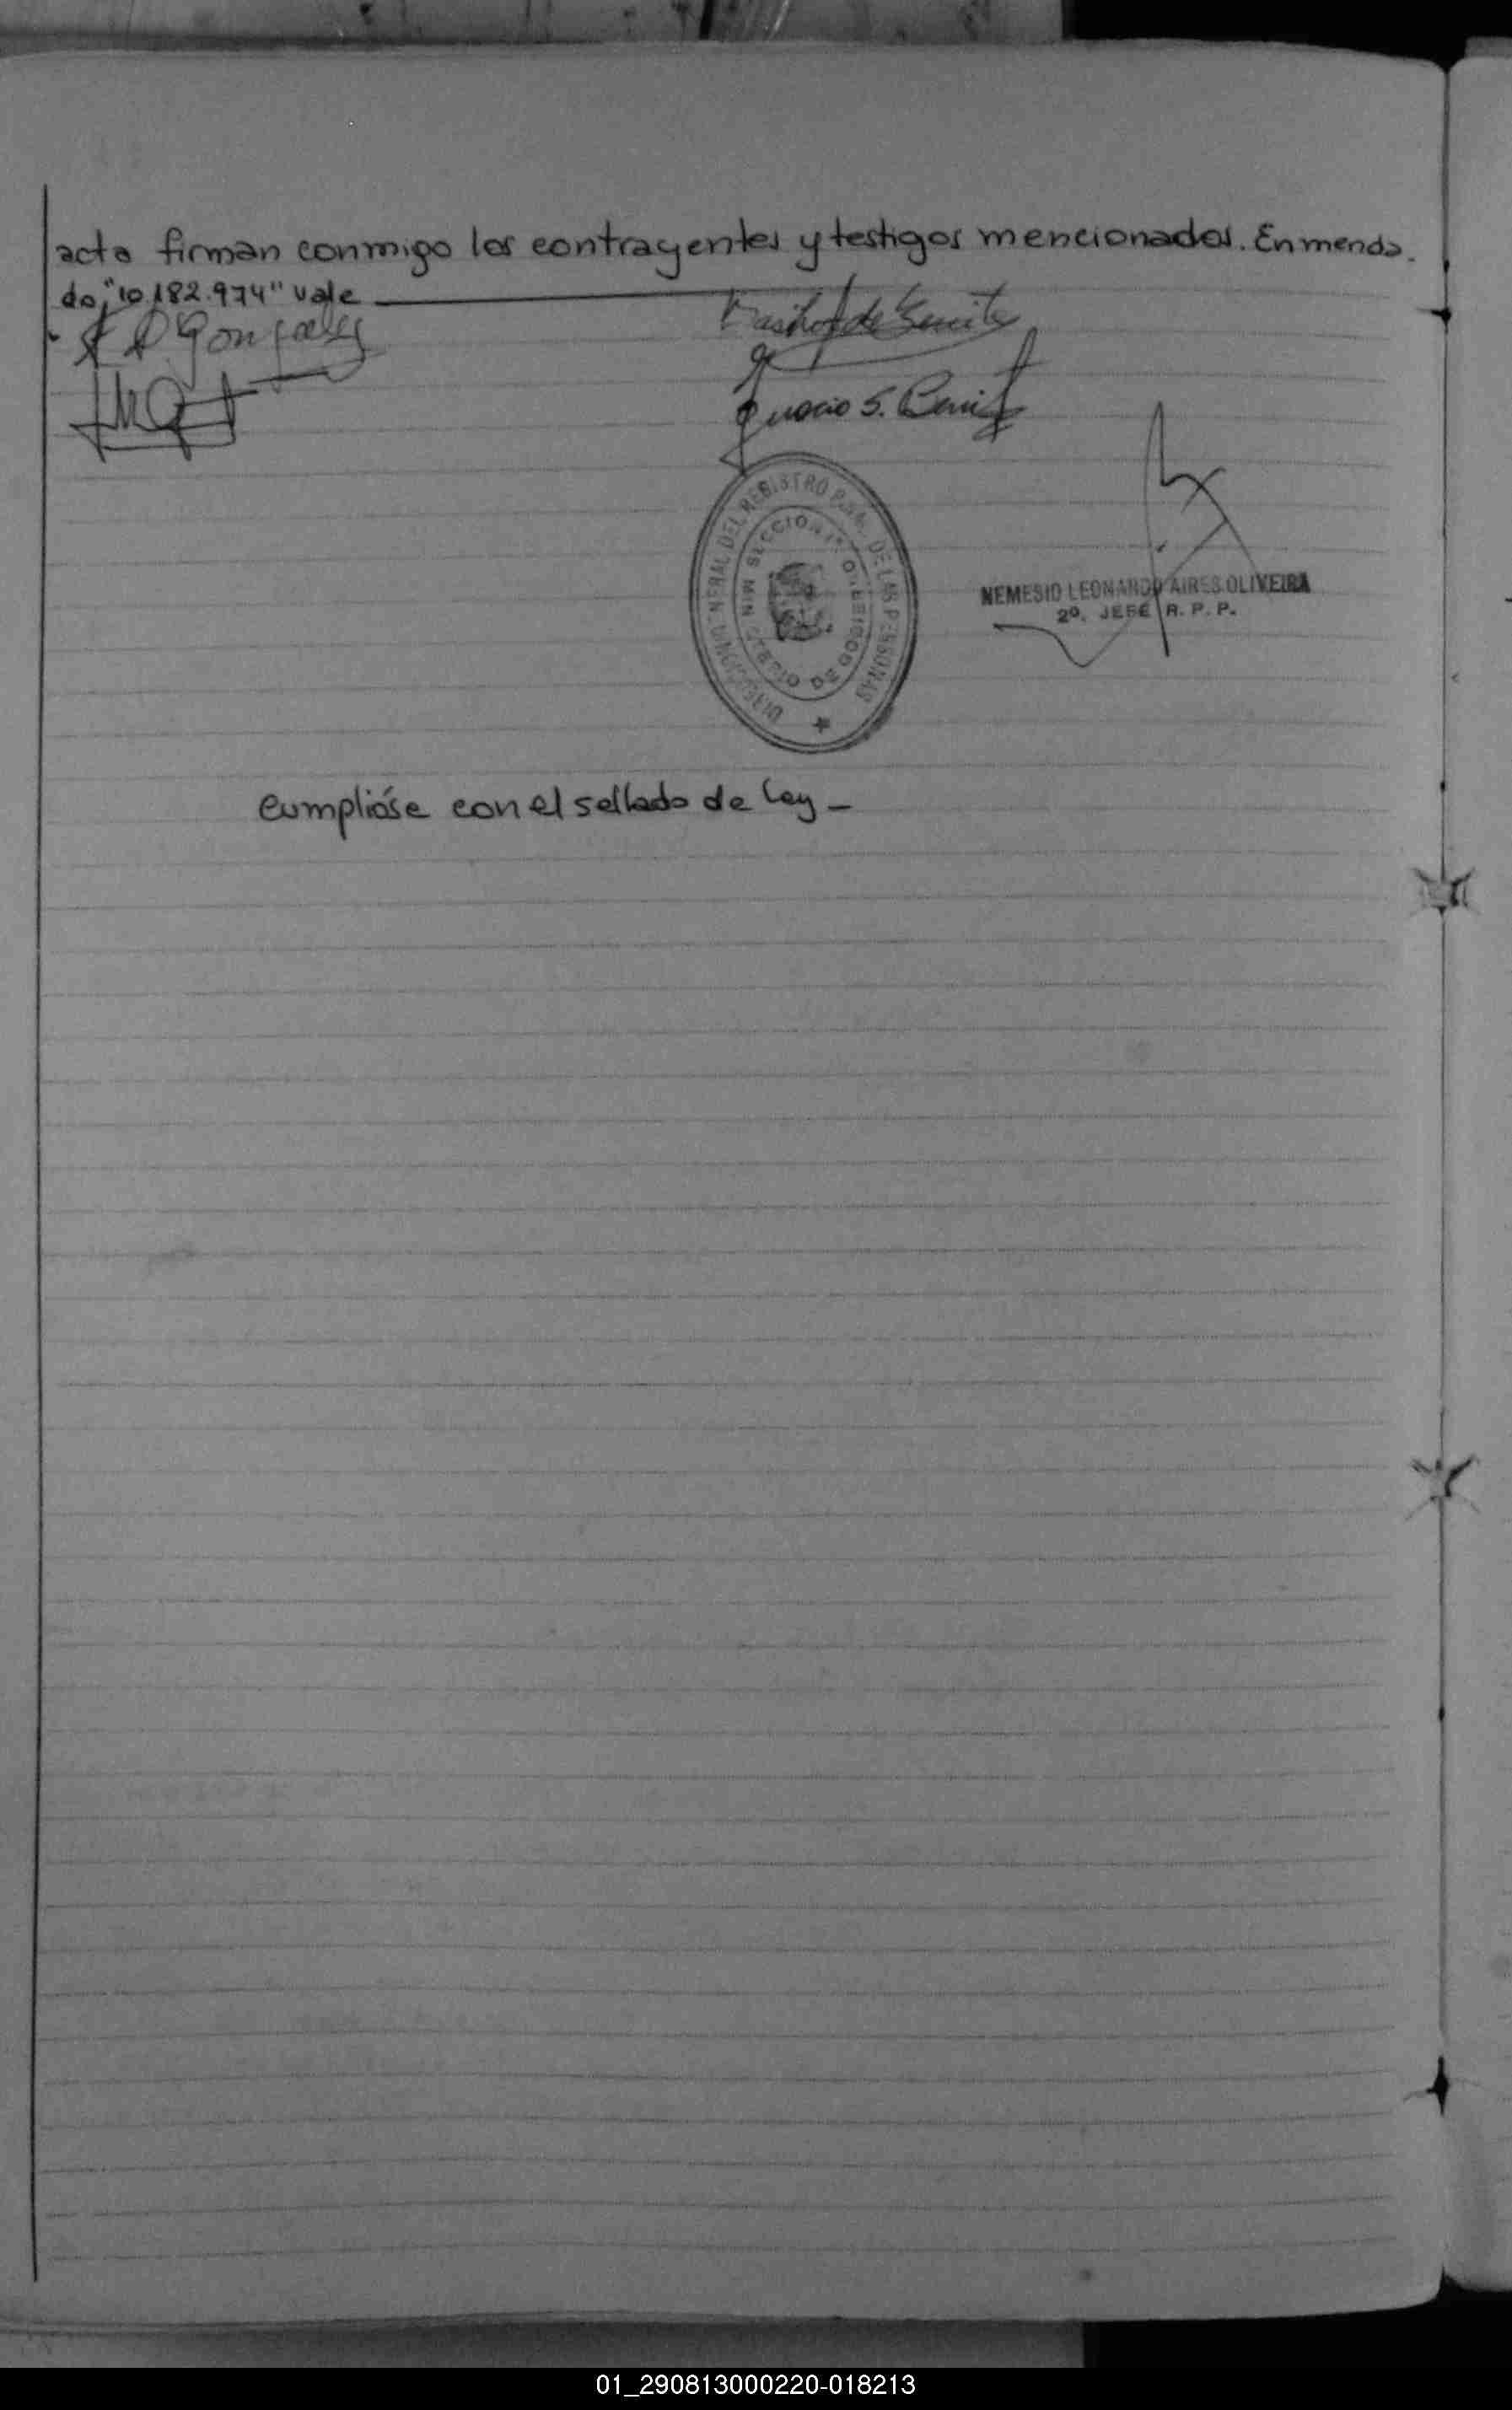 acta firman conmigo los contrayentes y testigos mencionados. Enmenda-
do; "10.182.974" vale
González
de Benitez
Ignacio S. Benitez
DIRECCION GENERAL DEL REGISTRO DE LAS PERSONAS
SECCION MINISTERIO DE GOBIERNO
NEMESIO LEONARDO AIRES OLIVEIRA
2º. JEFE R. P. P.
Cumplióse con el sellado de Ley -
01_290813000220-018213